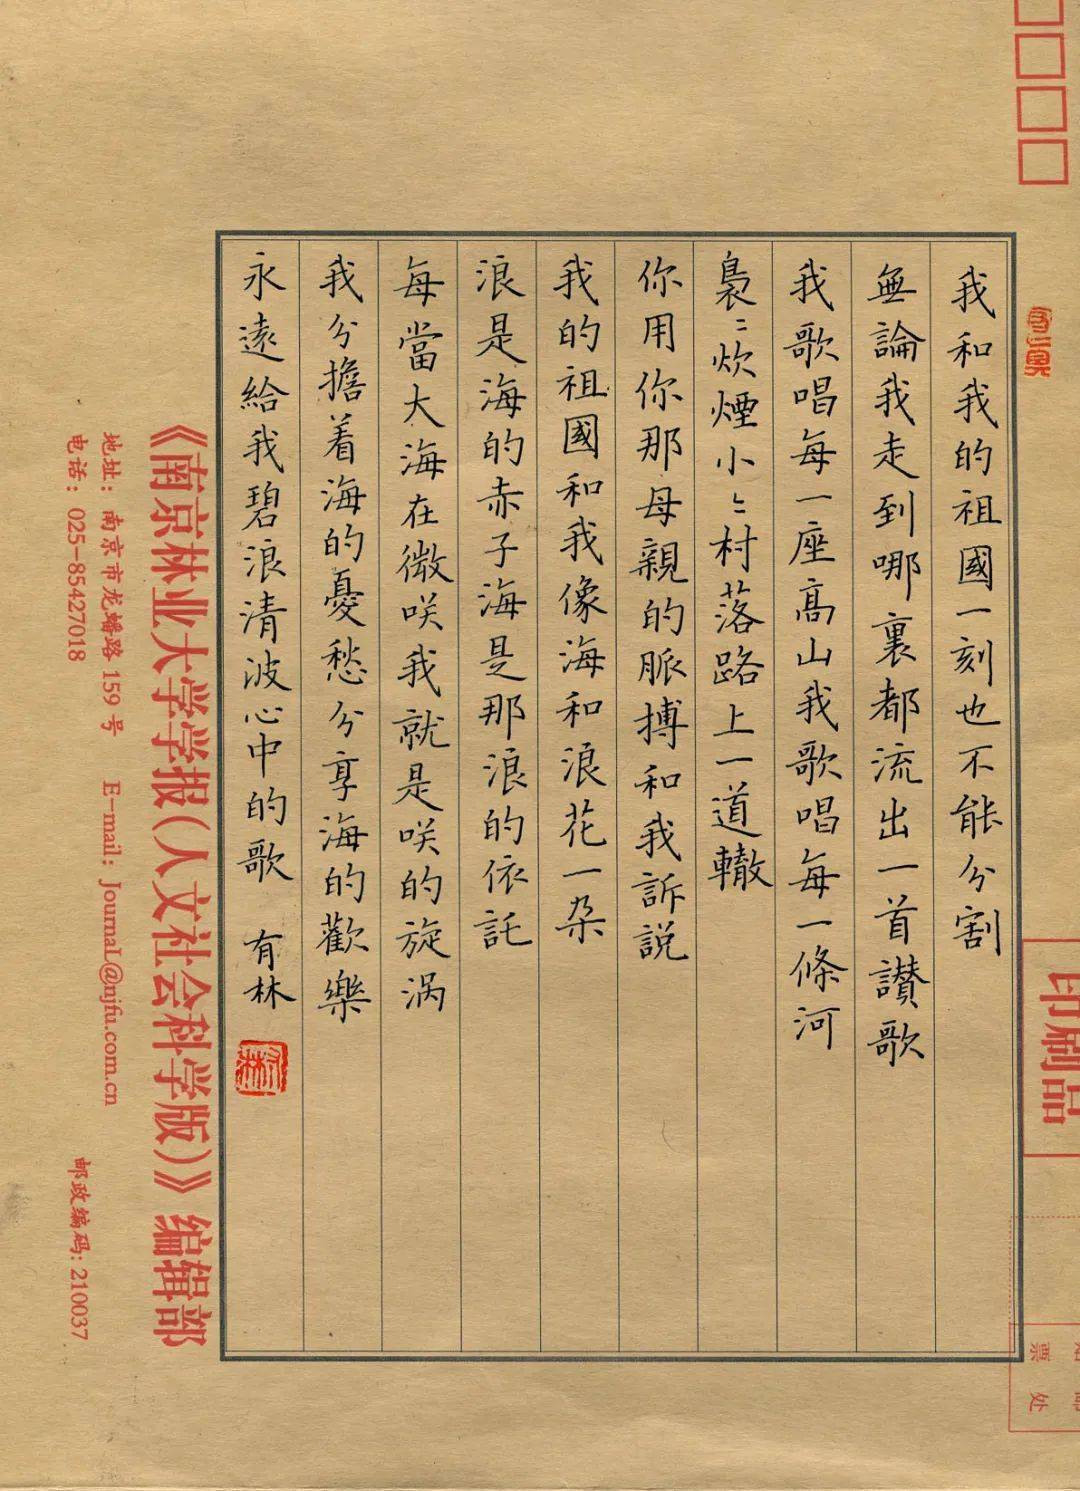 我和我的祖國一刻也不能分割
無論我走到哪裏都流出一首讃歌
我歌唱每一座高山我歌唱每一條河
裊〻炊煙小〻村落路上一道轍
你用你那母親的脈搏和我訴説
我的祖國和我像海和浪花一朶
浪是海的赤子海是那浪的依託
每當大海在微咲我就是咲的旋涡
我分擔着海的憂愁分享海的歡樂
永遠給我碧浪清波心中的歌 有林
有林
《南京林业大学学报(人文社会科学版)》编辑部
地址: 南京市龙蟠路 159 号 E-mail: JournaL@njfu.com.cn
电话: 025-85427018 邮政编码: 210037
印刷品
票 处